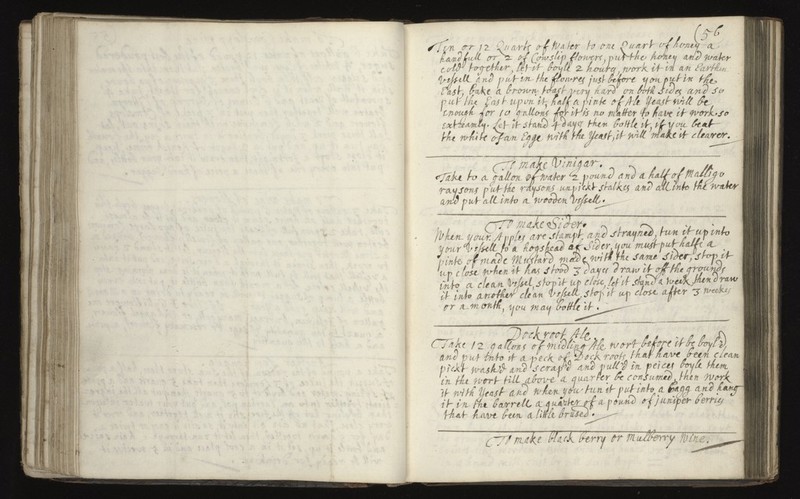 (56
Ten or 12 Quarts of Water to one Quart of honey a
handfull or 2 of Cowslip flowers, put the honey and water
cold together, let it boyle 2 hours, work it in an Earthen
Vessell and put in the flowres just before you put in the
East, bake a brown toast very hard on both sides and so
put the East upon it, half a pinte of Ale Yeast will be
enough for 10 gallons for it is no matter to have it work so
extreamly. Let it stand 4 days then bottle it, if you beat
the white of an Egge with the Yeast, it will make it clearer.
To make Vinigar.
Take to a gallon of water 2 pound and a half of Malligo
raysons put the raysons unpickt stalkes and all into the water
and put all into a wooden Vessell.
To make Sider.
When your Apples are stampt, and strayned, tun it up into
your Vessell, to a hogshead of Sider, you must put halfe a
pinte of made Mustard made with the same sider, stop it
up close when it has stood 3 days draw it off the grounds
into a clean Vessel, stop it up close, let it stand a week then draw
it into another clean Vessell stop it up close after 3 weekes
or a month, you may bottle it.
Dock root Ale
Take 12 gallons of midling Ale wort before it be boyl'd
and put into it a peck of Dock roots that have been clean
pickt washt and scrap'd and pull'd in peices boyle them
in the wort till above a quarter be consumed, then work
it with Yeast and when you tun it put into a bagg and hang
it in the barrell a quarter of a pound of juniper berries
that have been a little brused.
To make black berry or mulberry Wine.